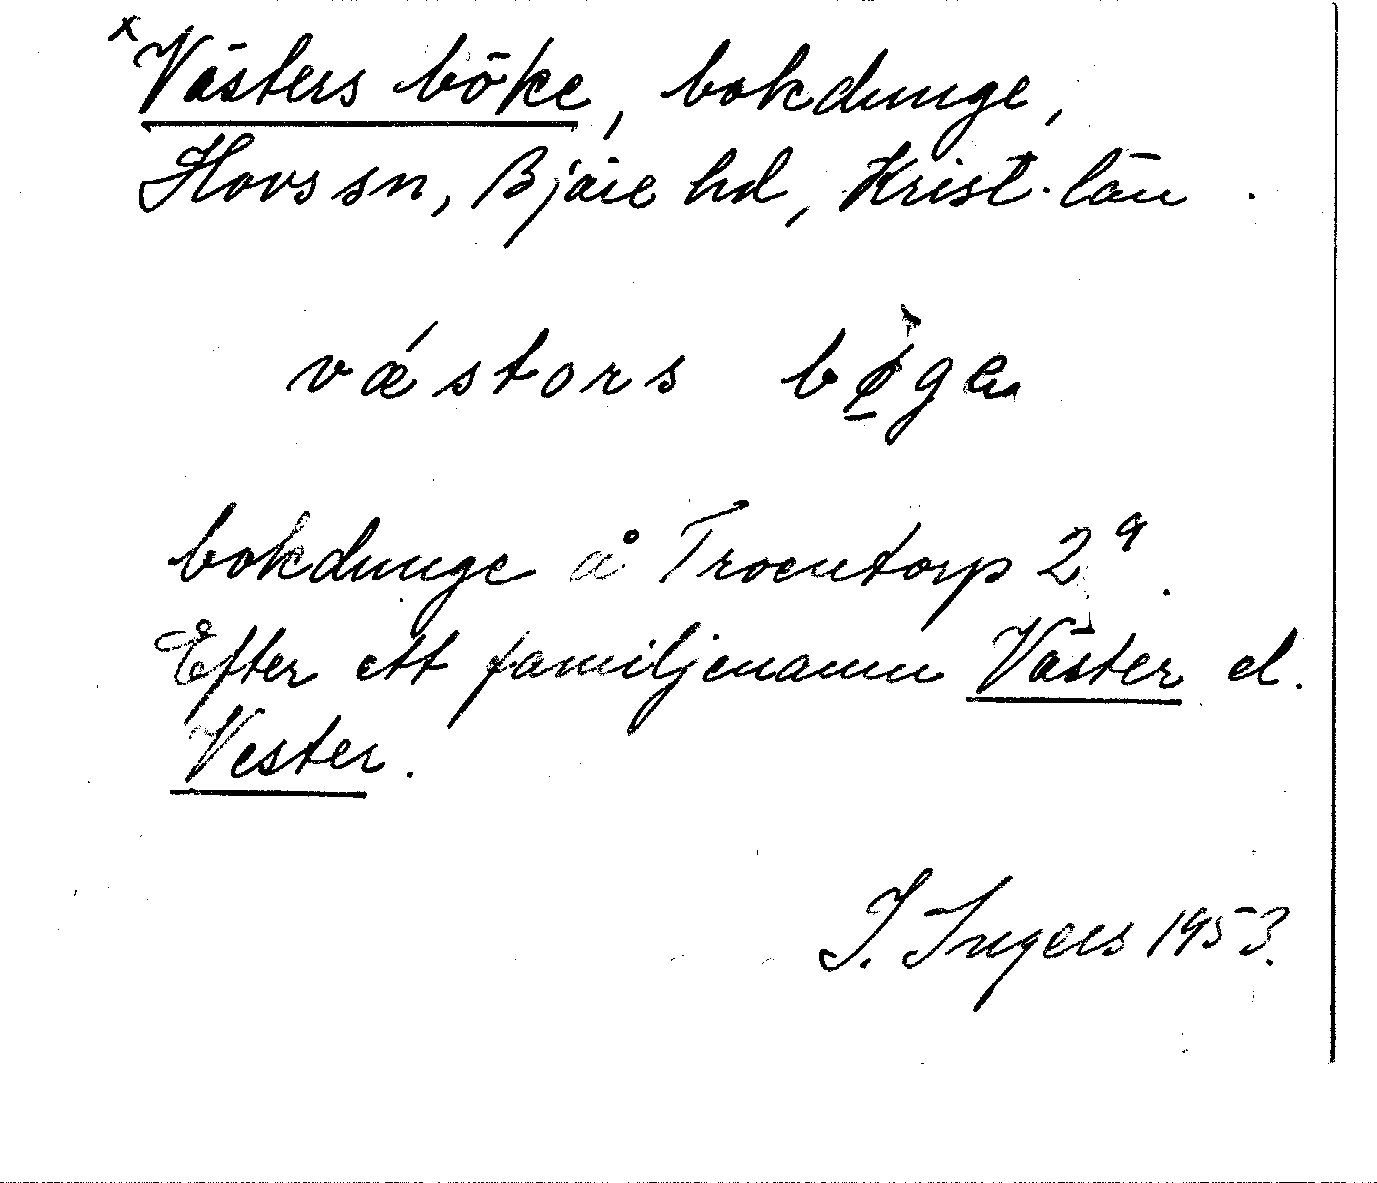 x Västers böke, bokdunge,
Hovs sn, Bjäre hd, Krist. län.
vǽstors bø̠̀ga
bokdunge å Troentorp 2ª.
Efter ett familjenamn Väster el.
Vester.
I. Ingers 1953.